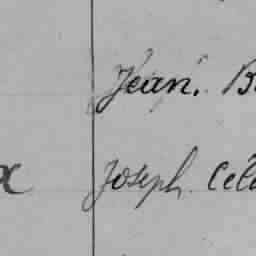 Jean. B
x Joseph Cél